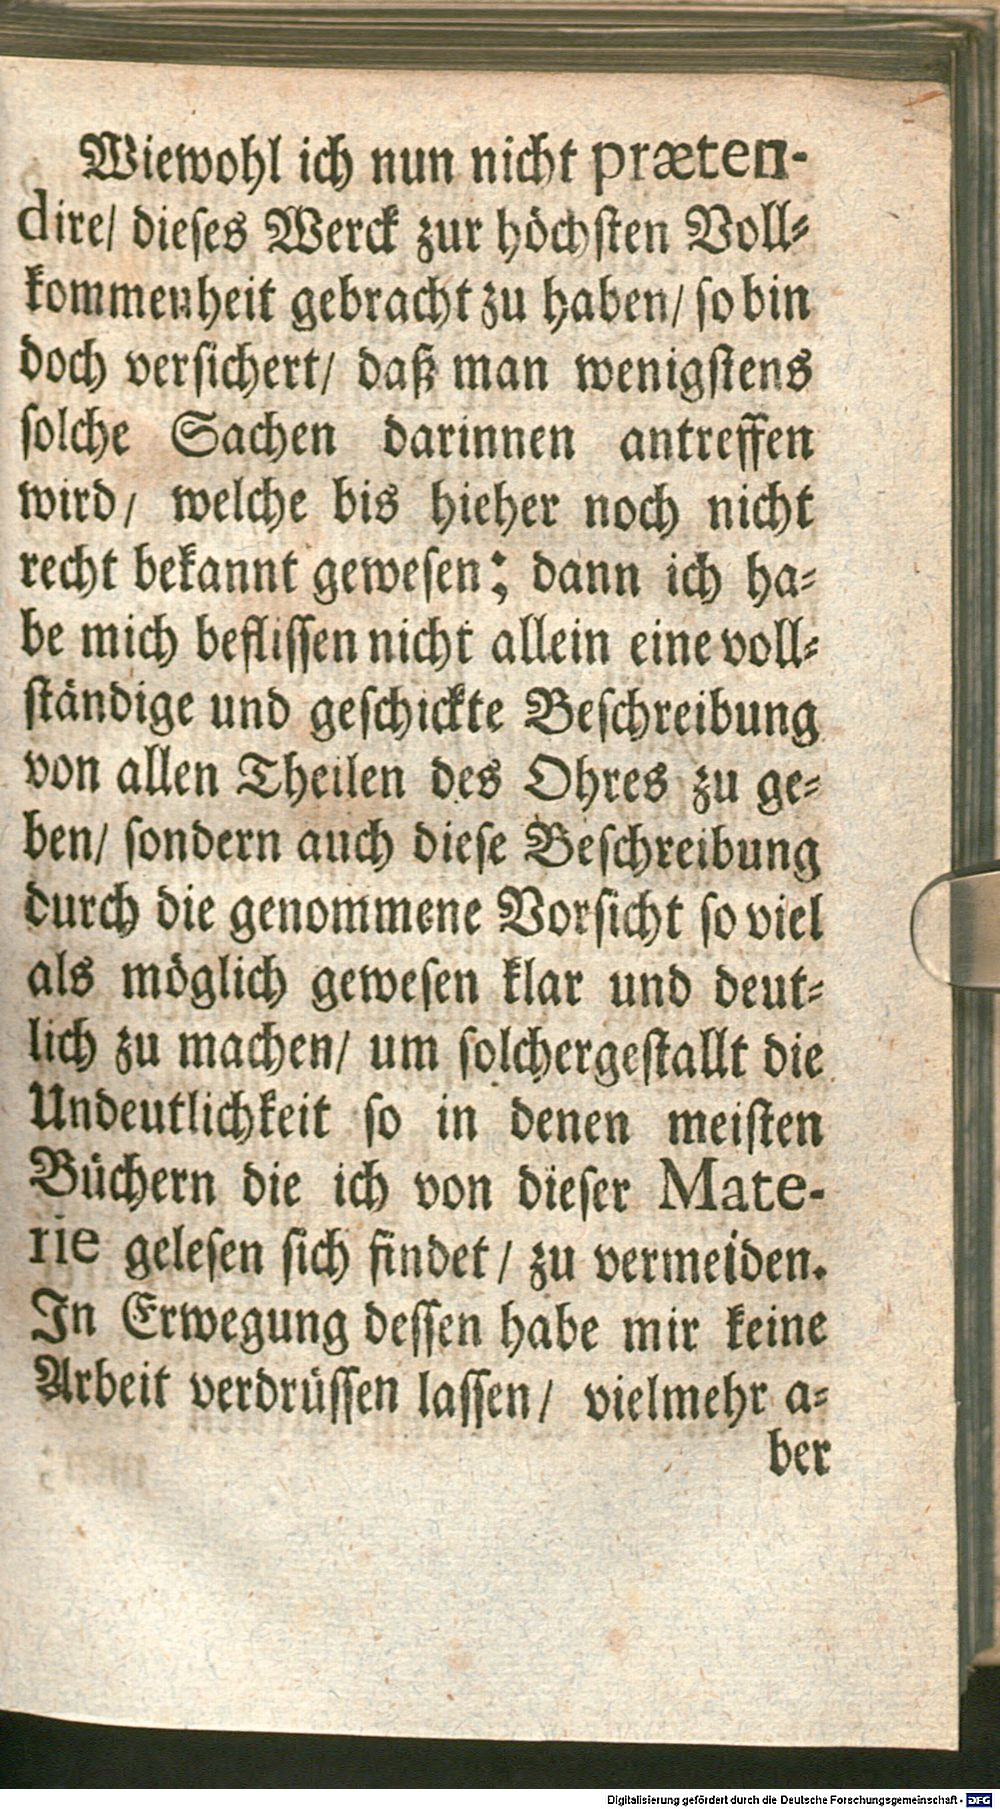 Wiewohl ich nun nicht præten-
dire/ dieses Werck zur höchsten Voll-
kommenheit gebracht zu haben/ so bin
doch versichert/ daß man wenigstens
solche Sachen darinnen antreffen
wird/ welche bis hieher noch nicht
recht bekannt gewesen; dann ich ha-
be mich beflissen nicht allein eine voll-
ständige und geschickte Beschreibung
von allen Theilen des Ohres zu ge-
ben/ sondern auch diese Beschreibung
durch die genommene Vorsicht so viel
als möglich gewesen klar und deut-
lich zu machen/ um solchergestallt die
Undeutlichkeit so in denen meisten
Büchern die ich von dieser Mate-
rie gelesen sich findet/ zu vermeiden.
In Erwegung dessen habe mir keine
Arbeit verdrüssen lassen/ vielmehr a-
ber
Digitalisierung gefördert durch die Deutsche Forschungsgemeinschaft - DFG